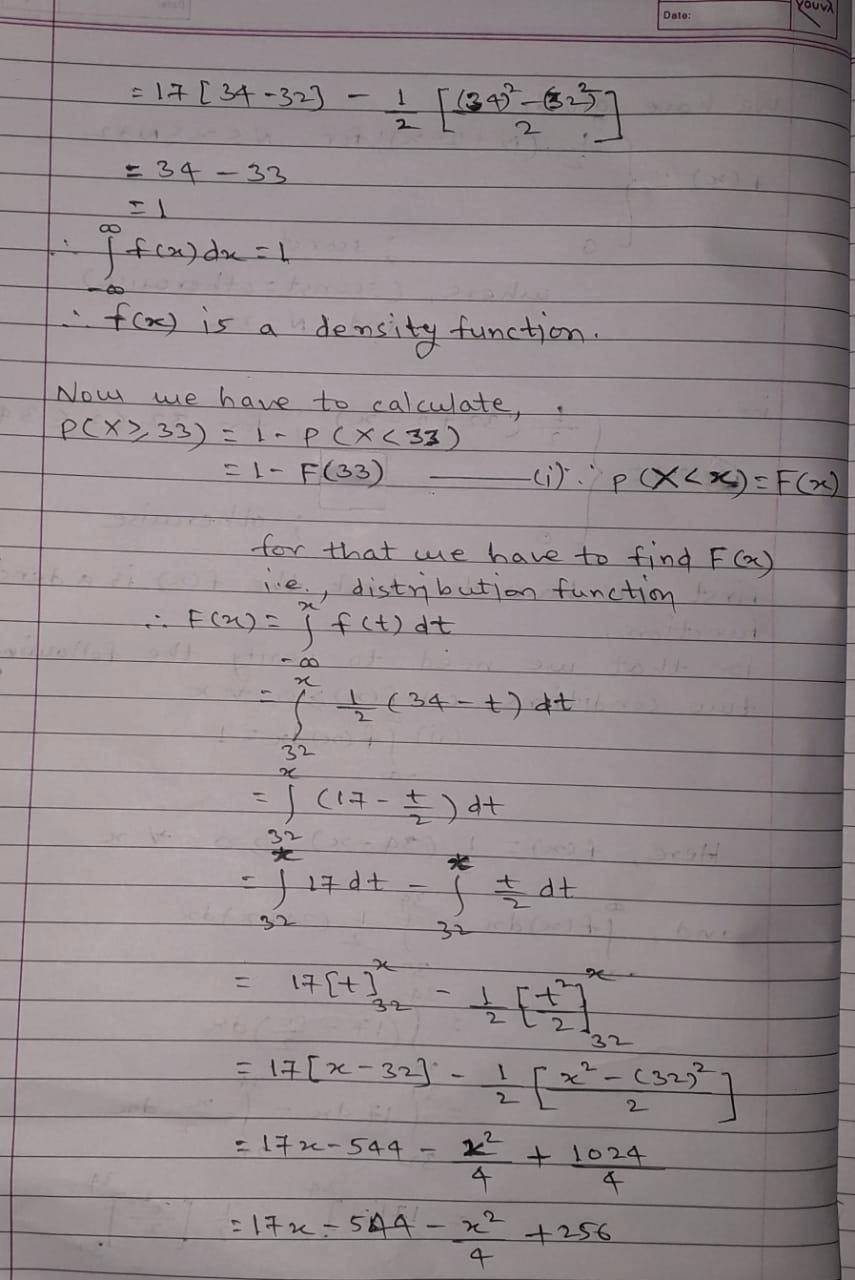 Date:
YOUVA
= 17 [34-32] - 1/2 [((34)² - (32)²)/2]
= 34 - 33
= 1
∴ ∫_{-∞}^{∞} f(x) dx = 1
∴ f(x) is a density function.
Now we have to calculate,
P(X ≥ 33) = 1 - P(X < 33)
= 1 - F(33) —— (i) ∵ P(X < x) = F(x)
for that we have to find F(x)
i.e., distribution function
∴ F(x) = ∫_{-∞}^{x} f(t) dt
= ∫_{32}^{x} 1/2 (34 - t) dt
= ∫_{32}^{x} (17 - t/2) dt
= ∫_{32}^{x} 17 dt - ∫_{32}^{x} t/2 dt
= 17 [t]_{32}^{x} - 1/2 [t²/2]_{32}^{x}
= 17 [x - 32] - 1/2 [(x² - (32)²)/2]
= 17x - 544 - x²/4 + 1024/4
= 17x - 544 - x²/4 + 256